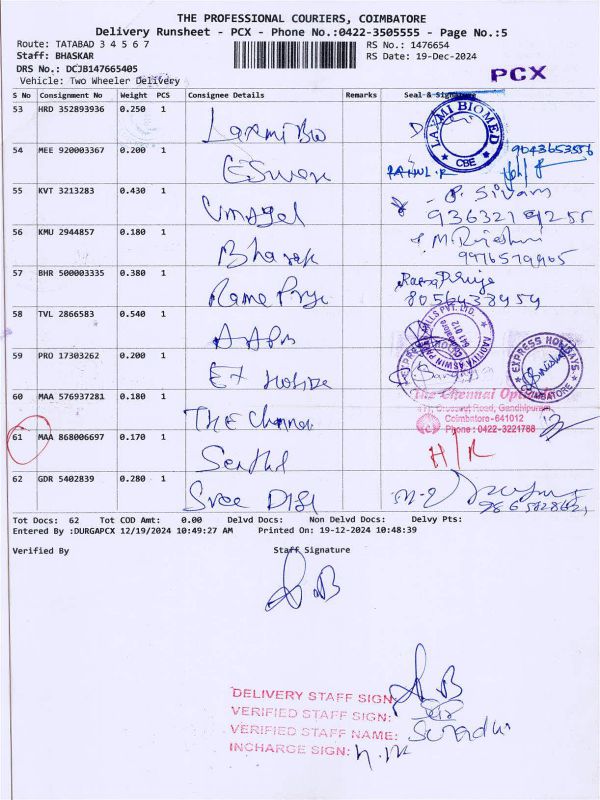 THE PROFESSIONAL COURIERS, COIMBATORE
Delivery Runsheet - PCX - Phone No.:0422-3505555 - Page No.:5
Route: TATABAD 3 4 5 6 7
RS No.: 1476654
Staff: BHASKAR
RS Date: 19-Dec-2024
DRS No.: DCJB147665405
PCX
Vehicle: Two Wheeler Delivery
S No Consignment No Weight PCS Consignee Details Remarks Seal & Signature
53 HRD 352893936 0.250 1 Laxmi Bio
LAXMI BIOMED
CBE
54 MEE 920003367 0.200 1 Eswari
9043653556
RAHUL.R
55 KVT 3213283 0.430 1
P. Sivam
9363219255
56 KMU 2944857 0.180 1 Bharak
M. Rajeshwi
9976579965
57 BHR 500003335 0.380 1 Rama Priya
Rama Priya
8056438454
58 TVL 2866583 0.540 1
AADHYA ASWIN
MILLS PVT. LTD.
641 012
59 PRO 17303262 0.200 1 Ex Holidze
EXPRESS HOLIDAYS
COIMBATORE
60 MAA 576937281 0.180 1 THE Chennai
The Chennai Opticals
Crosscut Road, Gandhipuram,
Coimbatore-641012
Phone : 0422-3221788
61 MAA 868006697 0.170 1 Senthil
H/R
62 GDR 5402839 0.280 1 Sree
Tot Docs: 62 Tot COD Amt: 0.00 Delvd Docs: Non Delvd Docs: Delvy Pts:
Entered By :DURGAPCX 12/19/2024 10:49:27 AM Printed On: 19-12-2024 10:48:39
Verified By Staff Signature
DELIVERY STAFF SIGN:
VERIFIED STAFF SIGN:
VERIFIED STAFF NAME:
INCHARGE SIGN: